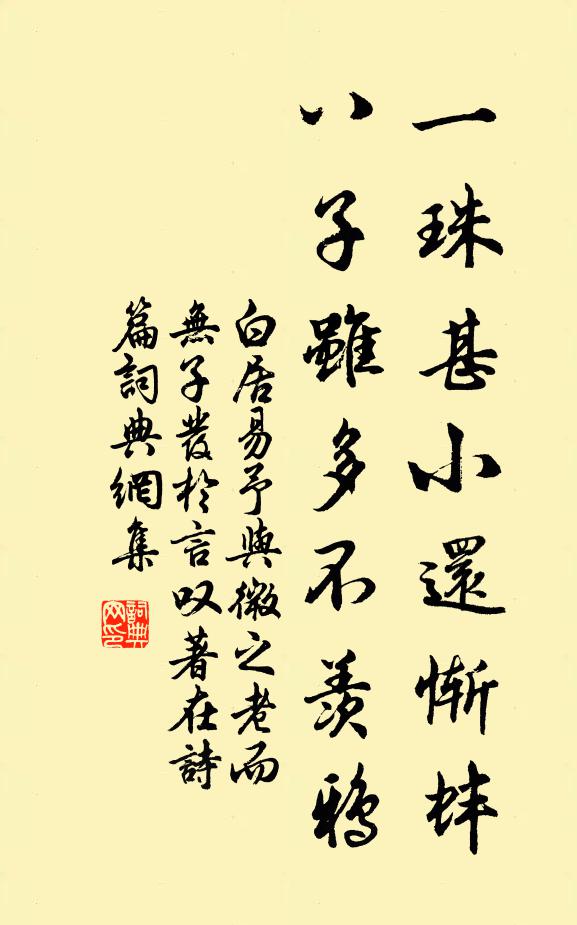 一珠甚小還慚蚌
八子雖多不羨鴉
白居易予與微之老而
無子發於言叹著在詩
篇詞典網集
詞典网印